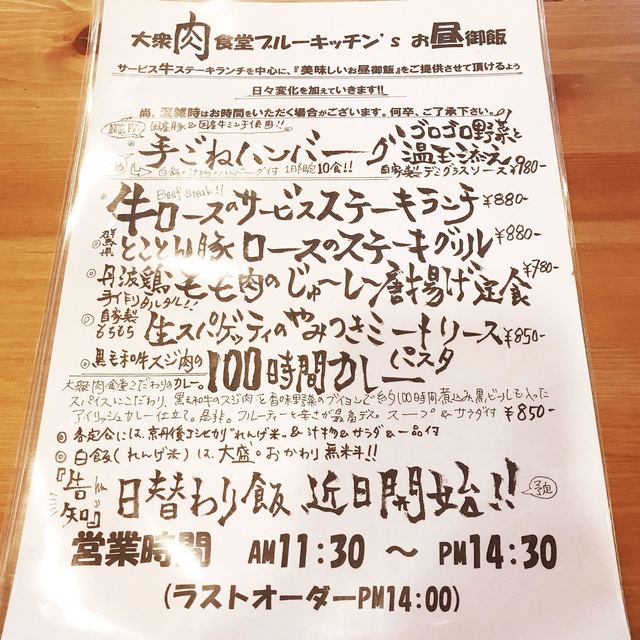 大衆肉食堂ブルーキッチン's お昼御飯
サービス牛ステーキランチを中心に、『美味しいお昼御飯』をご提供させて頂けるよう
日々変化を加えていきます!!
尚、混雑時はお時間をいただく場合がございます。何卒、ご了承下さい。
国産豚&国産牛ミンチ使用!!
手ごねハンバーグ ゴロゴロ野菜と温玉添え
白飯・汁物・ハンバーグ付 1日限定10食!!
自家製デミグラスソース ¥980-
Beef Steak!!
牛ロースのサービスステーキランチ ¥880-
群馬県 とことん豚ロースのステーキグリル ¥880-
丹波鶏もも肉のじゅ〜し〜唐揚げ定食 ¥780-
手作りタルタル!!
自家製もちもち 生スパゲッティのやみつきミートソースパスタ ¥850-
黒毛和牛スジ肉の 100時間カレー
大衆肉食堂こだわりのカレー。
スパイスにこだわり、黒毛和牛のスジ肉と香味野菜のブイヨンで約100時間煮込み、黒ビールも入った
アイリッシュカレー仕立て。是非。フルーティーと辛さが最高デス。スープ&サラダ付 ¥850-
各定食には、京丹後コシヒカリ"れんげ米"&汁物&サラダ&一品付
白飯(れんげ米)は、大盛。おかわり無料!!
『告知』 日替わり飯 近日開始!! 予定
営業時間 AM11:30 〜 PM14:30
(ラストオーダーPM14:00)